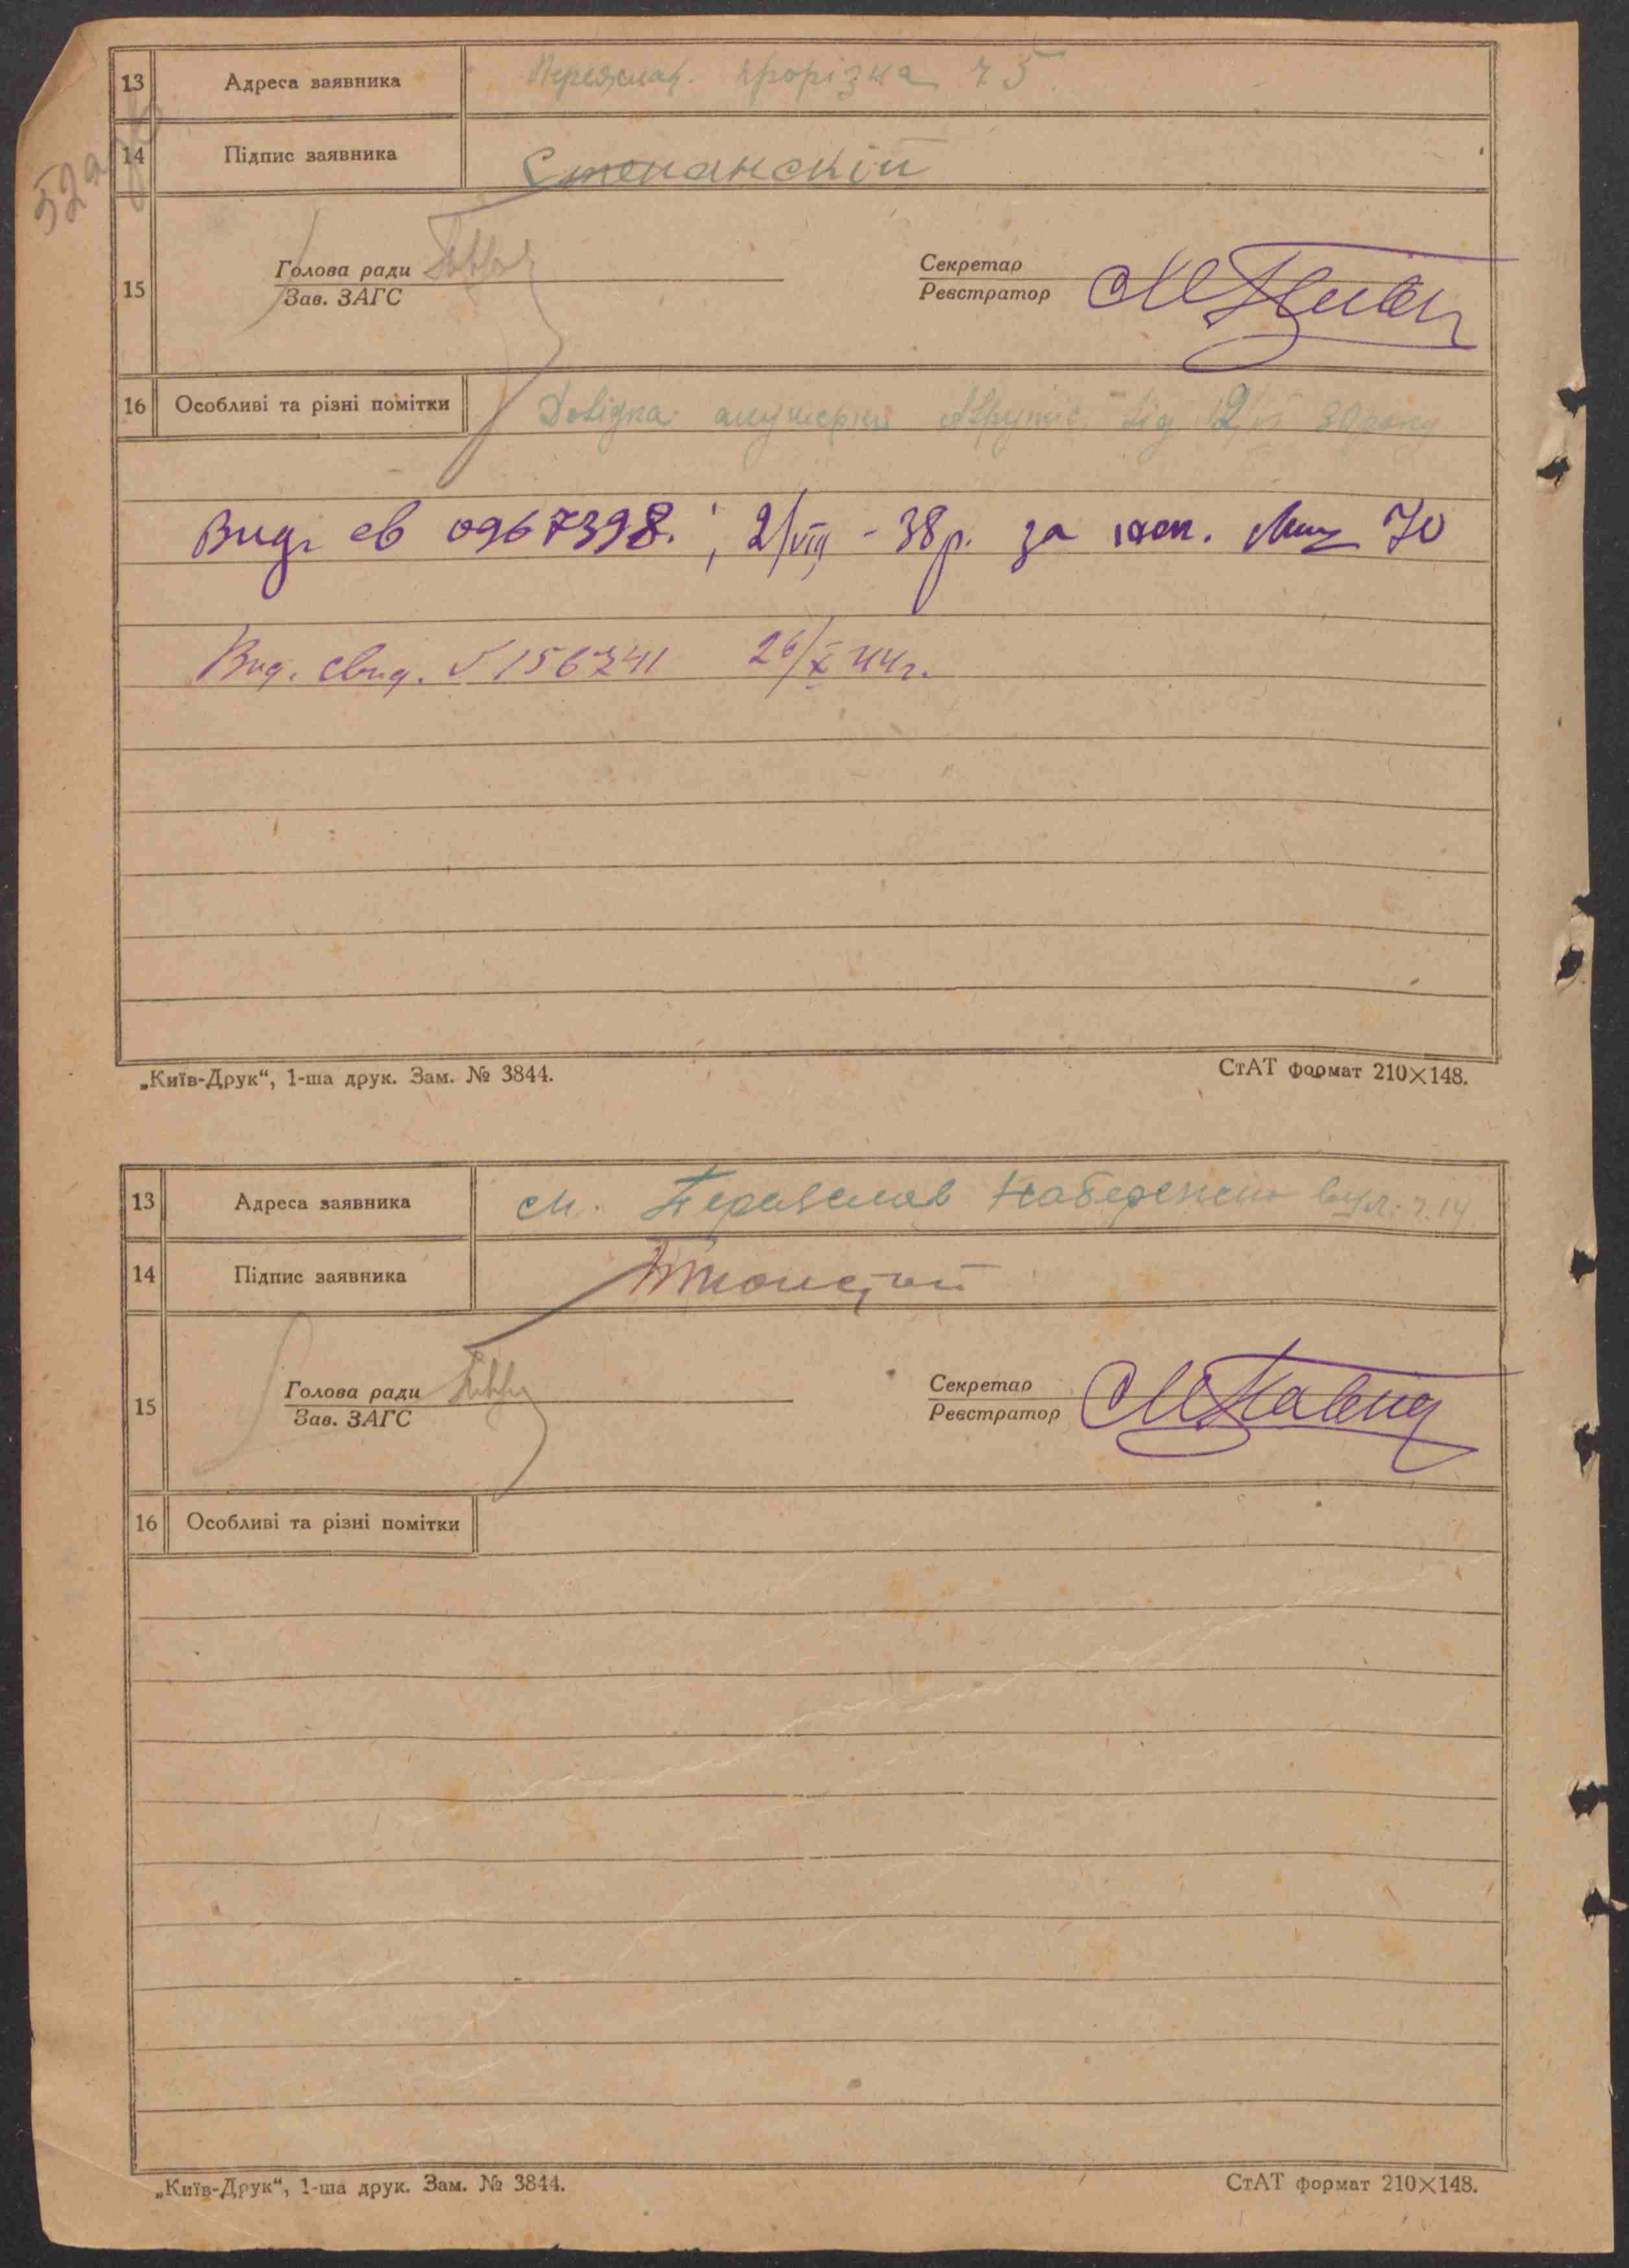 52 зв
13 Адреса заявника Переяслав. Прорізна ч 5
14 Підпис заявника Степанскій
15 Голова ради Секретар
Зав. ЗАГС Реєстратор
16 Особливі та різні помітки Довідка акушерки від 12/VI 30 року
Вид. св 0967398. ; 2/VIII - 38 р. за 70
Вид. свид. № 156741 26/X 44 г.
„Київ-Друк“, 1-ша друк. Зам. № 3844. СтАТ формат 210×148.
13 Адреса заявника м. Переяслав Набережна вул. ч. 14
14 Підпис заявника
15 Голова ради Секретар
Зав. ЗАГС Реєстратор
16 Особливі та різні помітки
„Київ-Друк“, 1-ша друк. Зам. № 3844. СтАТ формат 210×148.